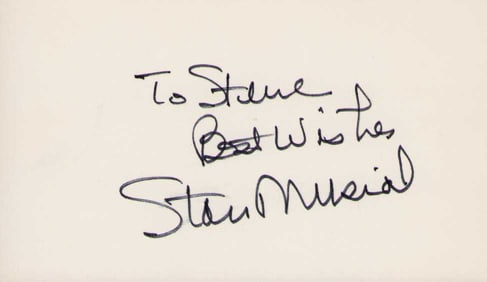 To Steve
Best Wishes
Stan Musial